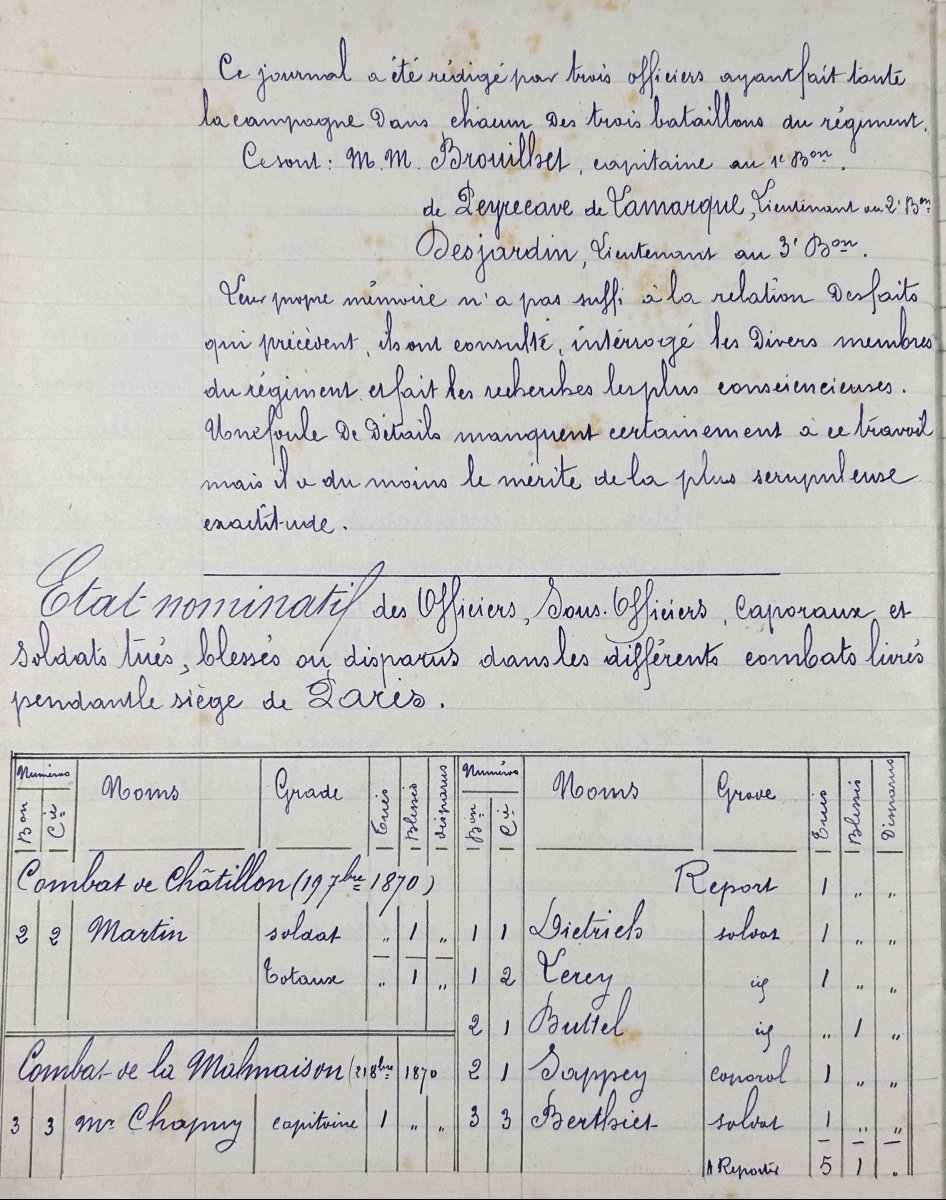 Ce journal a été rédigé par trois officiers ayant fait toute
la campagne Dans chacun Des trois bataillons du régiment.
Ce sont : M.M. Brouillet, capitaine au 1e Bon.
de Peyrecave de Lamarque, Lieutenant au 2e Bon
Desjardin, Lieutenant au 3e Bon.
Leur propre mémoire n'a pas suffi à la relation Des faits
qui précèdent, ils ont consulté, interrogé les Divers membres
du régiment, et fait les recherches les plus consciencieuses.
Une foule De Détails manquent certainement à ce travail
mais il a du moins le mérite de la plus scrupuleuse
exactitude.
Etat nominatif des Officiers, Sous-Officiers, Caporaux et
Soldats tués, blessés ou disparus dans les différents combats livrés
pendant le siège de Paris.
Numéros Noms Grade Tués Blessés disparus Numéros Noms Grade Tués Blessés Disparus
Bon Cie Bon Cie
Combat de Châtillon (19 7bre 1870) Report 1 " "
2 2 Martin soldat " 1 " 1 1 Dietrich soldat 1 " "
Totaux " 1 " 1 2 Lerey id 1 " "
2 1 Buttel id " 1 "
Combat de la Malmaison (21 8bre 1870 2 1 Sappey caporal 1 " "
3 3 Mr Chapuy capitaine 1 " " 3 3 Berthier soldat 1 " "
A Reporter 5 1 "